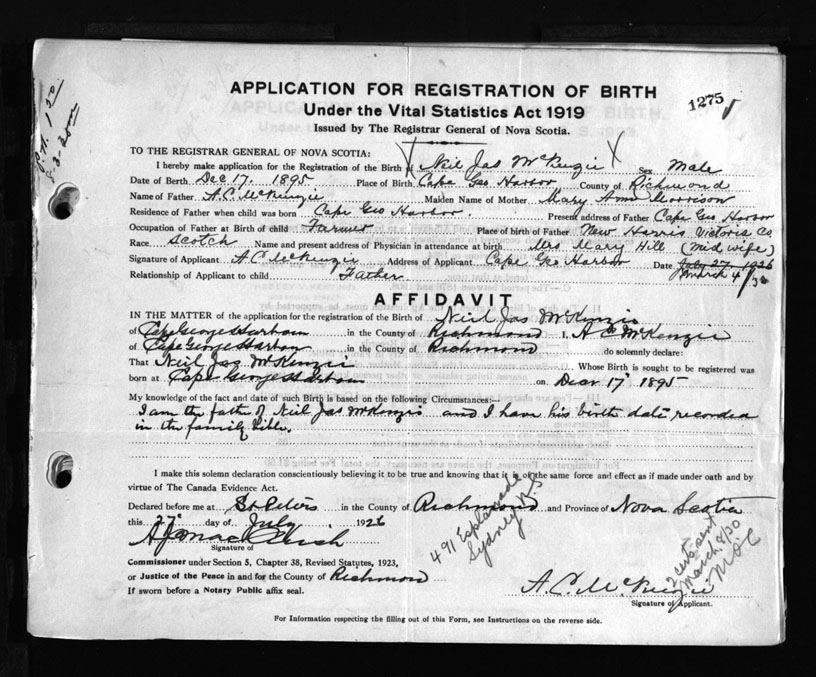 APPLICATION FOR REGISTRATION OF BIRTH
1275
Under the Vital Statistics Act 1919
Issued by The Registrar General of Nova Scotia.
TO THE REGISTRAR GENERAL OF NOVA SCOTIA:
I hereby make application for the Registration of the Birth of Neil Jas McKenzie Sex Male
Date of Birth Dec 17. 1895 Place of Birth Cape Geo Harbor County of Richmond
Name of Father A.C. McKenzie Maiden Name of Mother Mary Ann Morrison
Residence of Father when child was born Cape Geo Harbor. Present address of Father Cape Geo Harbor
Occupation of Father at Birth of child Farmer Place of birth of Father New Harris Victoria Co
Race Scotch Name and present address of Physician in attendance at birth Mrs Mary Hill (mid wife)
Signature of Applicant A.C. McKenzie Address of Applicant Cape Geo Harbor Date July 27 1926
March 4/30
Relationship of Applicant to child Father
AFFIDAVIT
IN THE MATTER of the application for the registration of the Birth of Neil Jas McKenzie
of Cape George Harbour in the County of Richmond I, A C McKenzie
of Cape George Harbour in the County of Richmond do solemnly declare:
That Neil Jas McKenzie Whose Birth is sought to be registered was
born at Cape George Harbour on Decr 17' 1895
My knowledge of the fact and date of such Birth is based on the following Circumstances:—
I am the father of Neil Jas McKenzie and I have his birth date recorded
in the family bible.
I make this solemn declaration conscientiously believing it to be true and knowing that it is of the same force and effect as if made under oath and by
virtue of The Canada Evidence Act.
Declared before me at St Peters in the County of Richmond and Province of Nova Scotia
this 27 day of July 1926
Signature of
491 Esplanade
Sydney N.S
Commissioner under Section 5, Chapter 38, Revised Statutes, 1923,
or Justice of the Peace in and for the County of Richmond
If sworn before a Notary Public affix seal.
A.C. McKenzie
Signature of Applicant.
sent
March 8/30
For Information respecting the filling out of this Form, see Instructions on the reverse side.